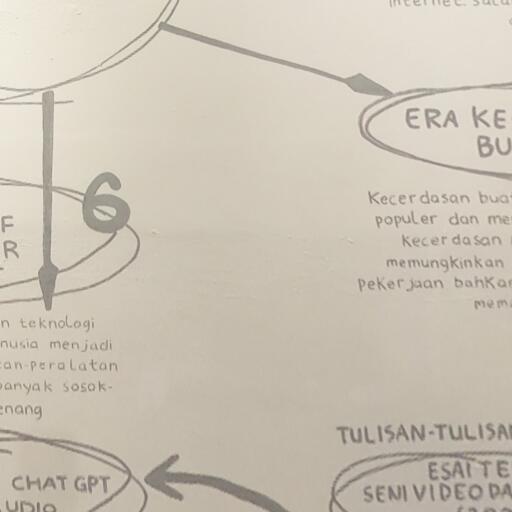 internet.
ERA KE
BU
6
F
R
Kecerdasan buat
populer dan me
Kecerdasan
memungkinkan
pekerjaan bahkan
mem
n teknologi
nusia menjadi
an-peralatan
banyak sosok-
enang
TULISAN-TULISAN
CHAT GPT
AUDIO
ESAI TE
SENI VIDEO DA